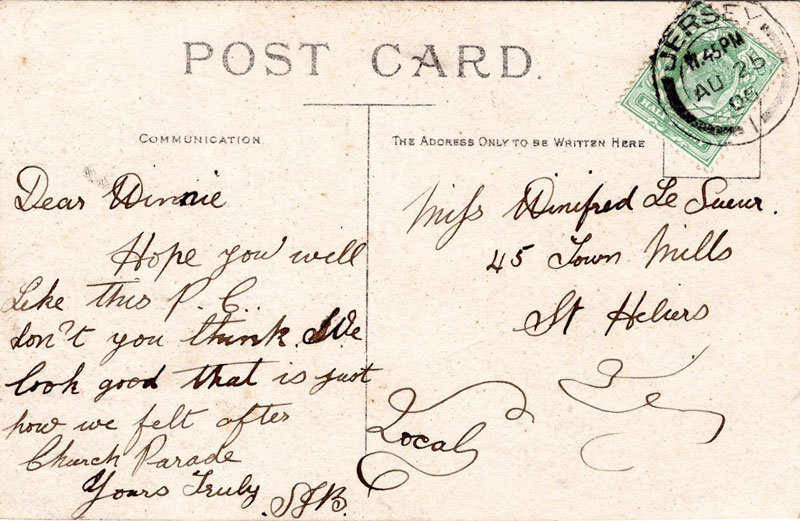 POST CARD.
COMMUNICATION
THE ADDRESS ONLY TO BE WRITTEN HERE
JERSEY
11.45PM
AU 26
Dear Winnie
Hope you will
Like this P.C.
don't you think We
look good that is just
how we felt after
Church Parade
Yours Truly
Miss Winifred Le Sueur.
45 Town Mills
St Heliers
Local